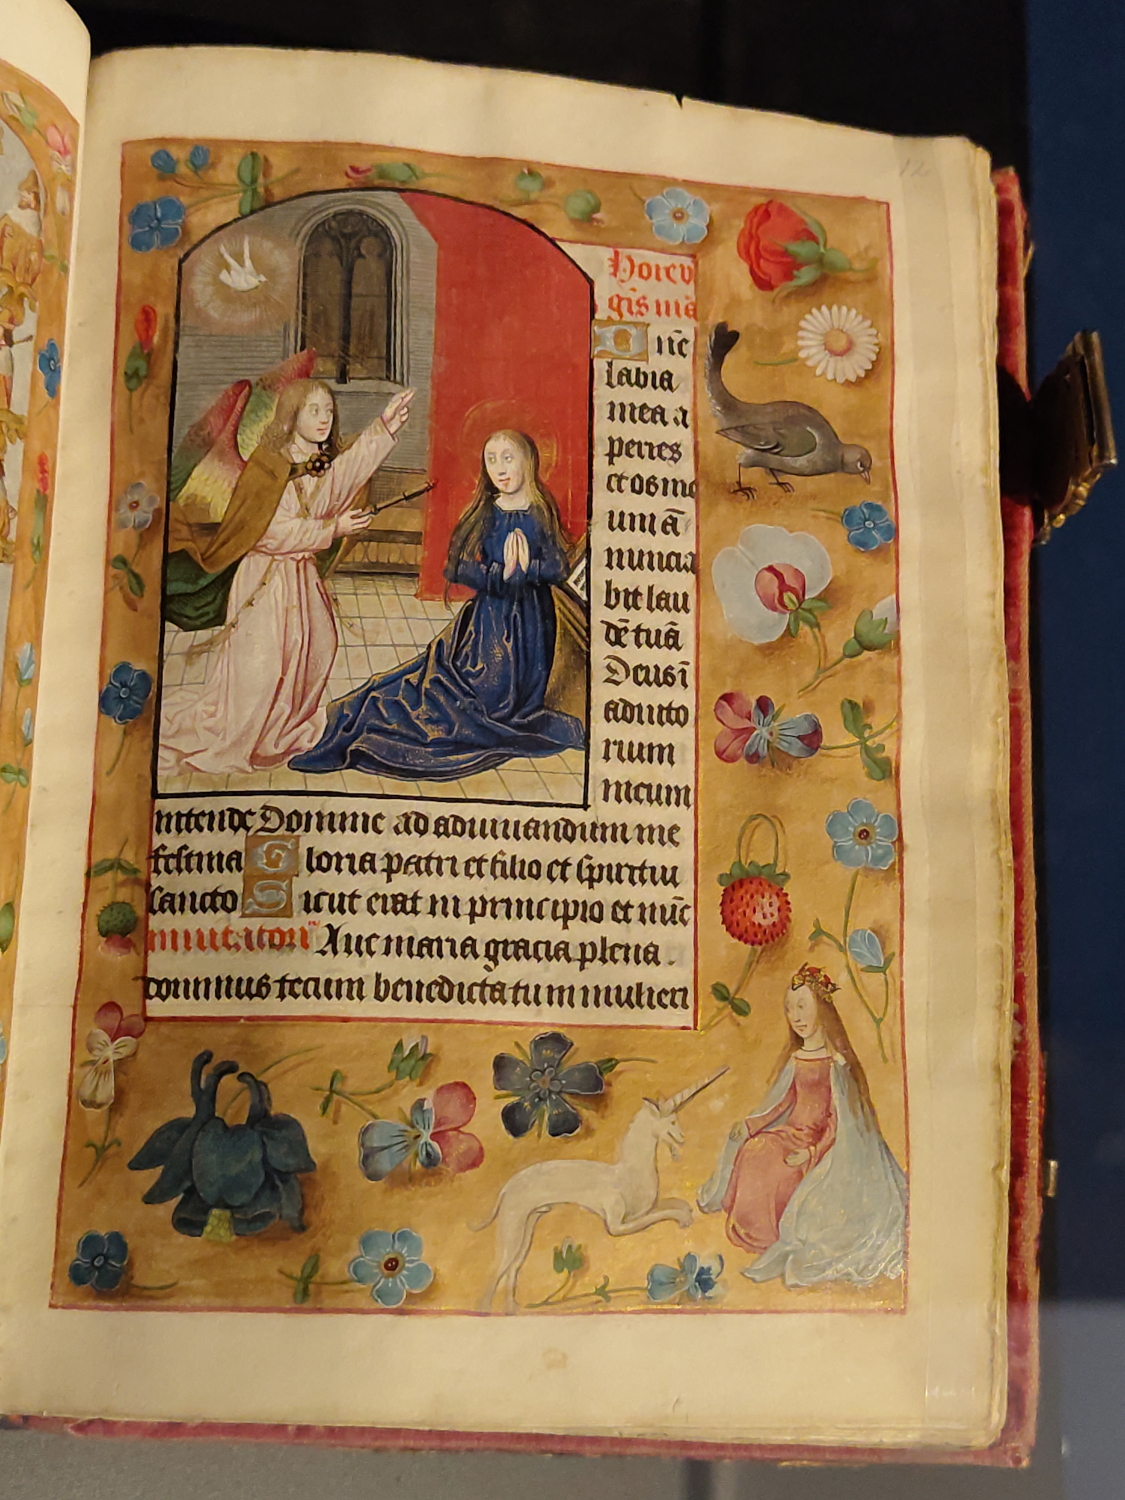 12
Hore v̄
gīs mā
D nē
labia
mea a
peries
et os me
um ā
nuncia
bit lau
dē tuā
Deus ī
adiuto
rium
meum
intende Domine ad adiuuandum me
festina Gloria patri et filio et spiritui
sancto Sicut erat in principio et nūc
inuitatori Aue maria gracia plena
dominus tecum benedicta tu in mulieri